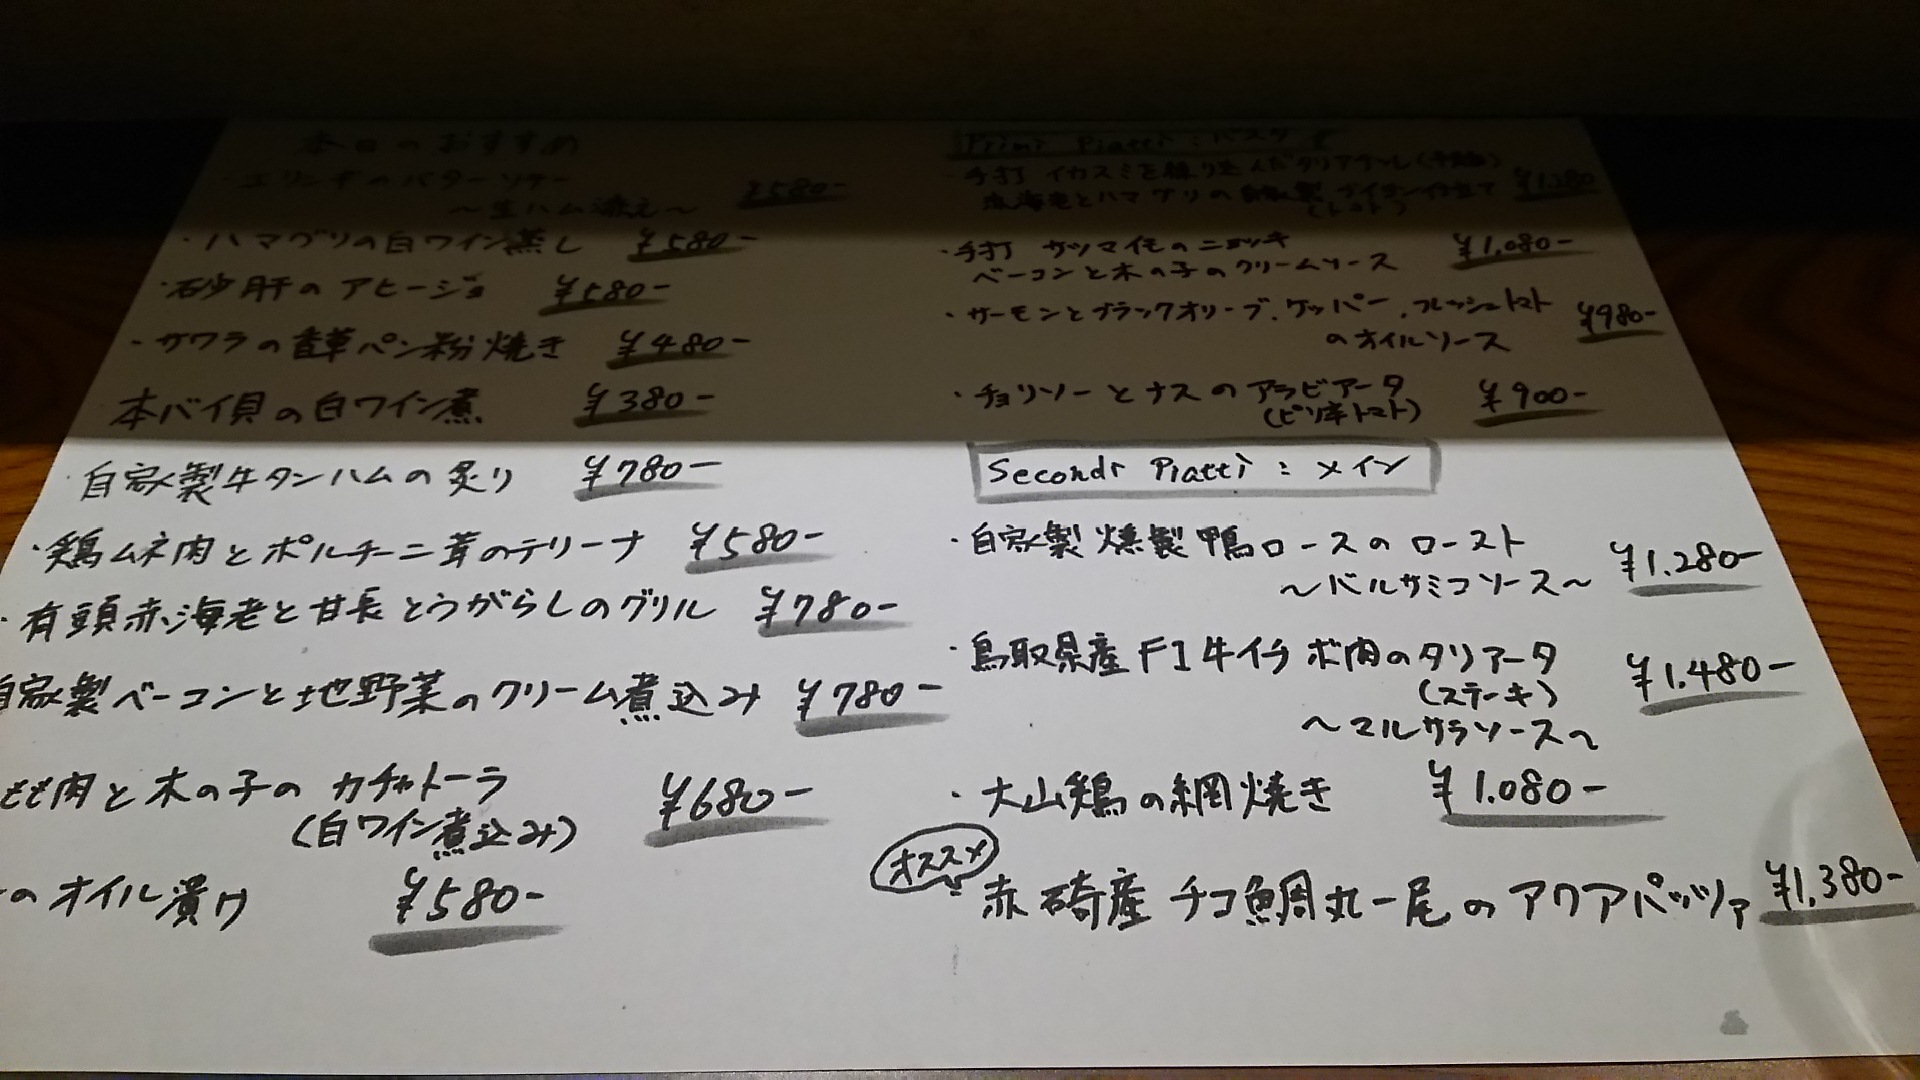 本日のおすすめ
・エリンギのバターソテー
〜生ハム添え〜 ¥580-
・ハマグリの白ワイン蒸し ¥580-
・砂肝のアヒージョ ¥580-
・サワラの香草パン粉焼き ¥480-
本バイ貝の白ワイン煮 ¥380-
・自家製牛タンハムの炙り ¥780-
・鶏ムネ肉とポルチーニ茸のテリーナ ¥580-
・有頭赤海老と甘長とうがらしのグリル ¥780-
自家製ベーコンと地野菜のクリーム煮込み ¥780-
もも肉と木の子のカチャトーラ ¥680-
(白ワイン煮込み)
のオイル漬け ¥580-
Primi Piatti:パスタ
・手打 イカスミを練り込んだタリアテッレ
海老とハマグリの自家製 仕立て ¥1.280
(トマト)
・手打 サツマイモのニョッキ ¥1.080-
ベーコンと木の子のクリームソース
・サーモンとブラックオリーブ、ケッパー、フレッシュトマト ¥980-
のオイルソース
・チョリソーとナスのアラビアータ ¥900-
(ピリ辛トマト)
Secondi Piatti:メイン
・自家製燻製鴨ロースのロースト ¥1.280-
〜バルサミコソース〜
・鳥取県産F1牛イチボ肉のタリアータ ¥1.480-
(ステーキ)
〜マルサラソース〜
・大山鶏の網焼き ¥1.080-
オススメ
赤碕産チコ鯛丸一尾のアクアパッツァ ¥1.380-